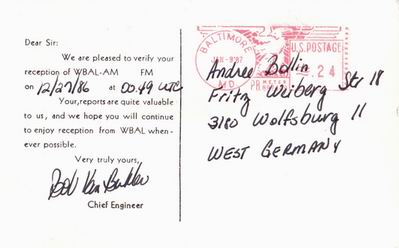 Dear Sir:
We are pleased to verify your
reception of WBAL-AM FM
on 12/27/86 at 00:49 UTC
Your, reports are quite valuable
to us, and we hope you will continue
to enjoy reception from WBAL when-
ever possible.
Very truly yours,
Bob Van Buhler
Chief Engineer
BALTIMORE
JAN-9'87
MD
U.S. POSTAGE
.24
METER
Andree Bollin
Fritz Weiberg Str 18
3180 Wolfsburg 11
WEST GERMANY